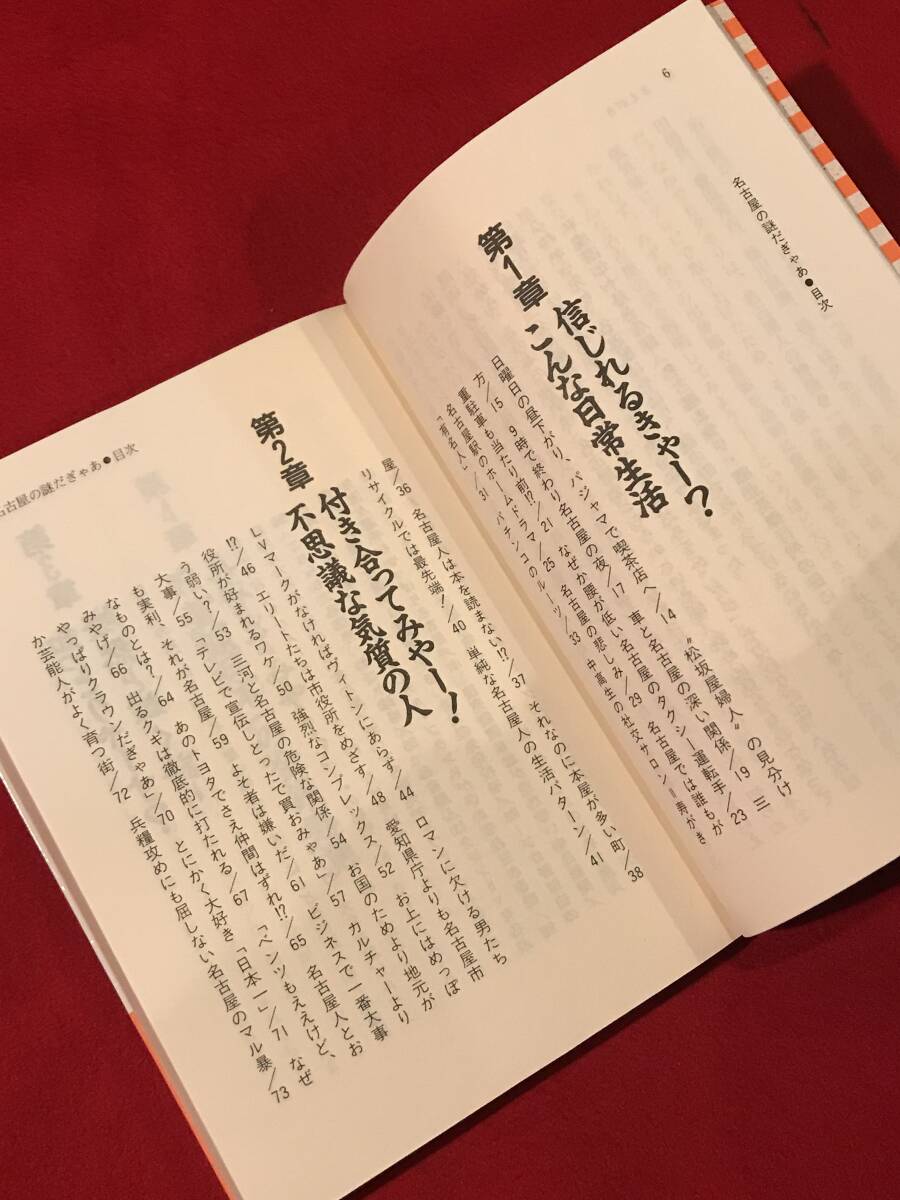 6
名古屋の謎だぎゃあ●目次
第1章 信じれるきゃー?
こんな日常生活
日曜日の昼下がり、パジャマで喫茶店へ/14 〝松坂屋婦人〟の見分け
方/15 9時で終わり名古屋の夜/17 車と名古屋の深い関係/19 三
重駐車も当たり前!?/21 なぜか腰が低い名古屋のタクシー運転手/23
名古屋駅のホームドラマ/25 名古屋の悲しみ/29 名古屋では誰もが
「有名人」/31 パチンコのルーツ/33 中高生の社交サロン=寿がき
屋/36 名古屋人は本を読まない!?/37 それなのに本屋が多い町/38
リサイクルでは最先端!/40 単純な名古屋人の生活パターン/41
第2章 付き合ってみやー!
不思議な気質の人
LVマークがなければヴィトンにあらず/44 ロマンに欠ける男たち
!?/46 エリートたちは市役所をめざす/48 愛知県庁よりも名古屋市
役所が好まれるワケ/50 強烈なコンプレックス/52 お上にはめっぽ
う弱い?/53 三河と名古屋の危険な関係/54 お国のためより地元が
大事/55 「テレビで宣伝しとったで買おみゃあ」/57 カルチャーより
も実利、それが名古屋/59 よそ者は嫌いだ/61 ビジネスで一番大事
なものとは?/64 あのトヨタでさえ仲間はずれ!?/65 名古屋人とお
みやげ/66 出るクギは徹底的に打たれる/67 「ベンツもええけど、
やっぱりクラウンだぎゃあ」/70 とにかく大好き「日本一」/71 なぜ
か芸能人がよく育つ街/72 兵糧攻めにも屈しない名古屋のマル暴/73
名古屋の謎だぎゃあ●目次